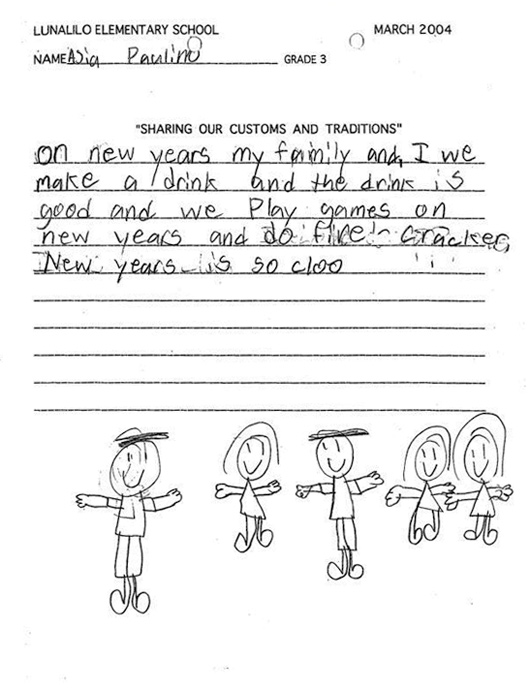 LUNALILO ELEMENTARY SCHOOL MARCH 2004
NAME Asia Paulino GRADE 3
"SHARING OUR CUSTOMS AND TRADITIONS"
on new years my family and, I we
make a drink and the drink is
good and we Play games on
new years and do fire cracker
New years is so cloo